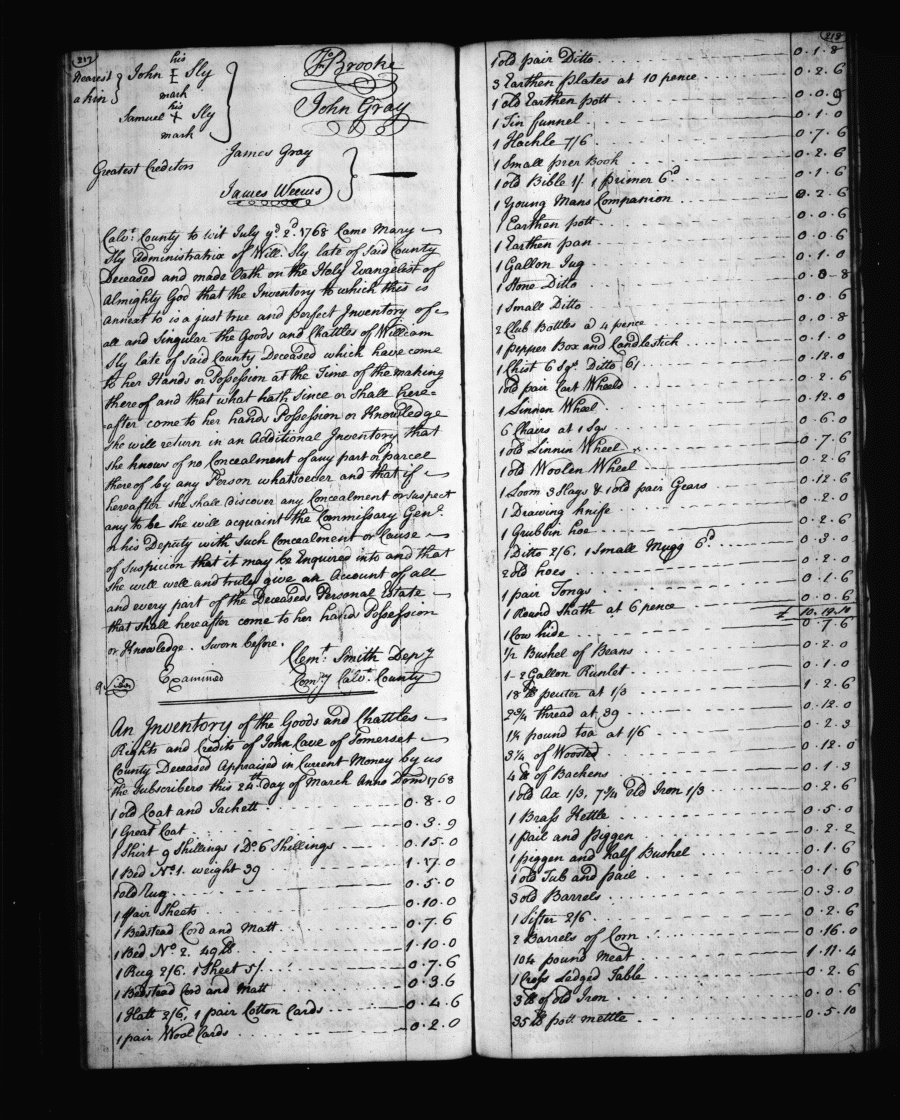 217
Nearest
a kin
his
John E Sly
mark
his
Samuel + Sly
mark
Jo Brooke
John Gray
Greatest Creditors
James Gray
James Weems
Calvt. County to wit July ye. 2d. 1768 Came Mary
Sly Administratrix of Will. Sly late of said County
Deceased and made Oath on the Holy Evangelist of
Almighty God that the Inventory to which this is
annext to is a just true and perfect Inventory of
all and Singular the Goods and Chattles of William
Sly late of said County Deceased which have come
to her Hands or Possession at the Time of the making
thereof and that what hath since or shall here=
after come to her hands Possession or Knowledge
she will return in an Additional Inventory that
she knows of no Concealment of any part or parcel
thereof by any Person whatsoever and that if
hereafter she shall Discover any Concealment or suspect
any to be she will acquaint the Commissary Genl.
or his Deputy with such Concealment or Cause
of Suspicion that it may be Enquired into and that
she will well and truly give an Account of all
and every part of the Deceaseds Personal Estate
that shall hereafter come to her hands Possession
or Knowledge. Sworn before.
Clemt. Smith Depy
Examined Comy Calvt. County
An Inventory of the Goods and Chattles
Rights and Credits of John Cave of Somerset
County Deceased Appraised in Current Money by us
the Subscribers this 24th day of March Anno Dom 1768
1 old Coat and Jackett 0.8.0
1 Great Coat 0.3.9
1 Shirt 9 Shillings 1 Do. 6 Shillings 0.15.0
1 Bed No. 1. weight 39 1.17.0
1 old Rug 0.5.0
1 pair Sheets 0.10.0
1 Bedstead Cord and Matt 0.7.6
1 Bed No. 2. 49 lb 1.10.0
1 Rug 2/6. 1 Sheet 5/. 0.7.6
1 Bedstead Cord and Matt 0.3.6
1 Hatt 2/6, 1 pair Cotton Cards 0.4.6
1 pair Wool Cards 0.2.0
218
1 old pair Ditto 0.1.8
3 Earthen Plates at 10 pence 0.2.6
1 old Earthen pott 0.0.9
1 Tin funnel 0.1.0
1 Hackle 7/6 0.7.6
1 Small prer Book 0.2.6
1 old Bible 1/. 1 primer 6d 0.1.6
1 Young Mans Companion 0.2.6
1 Earthen pott 0.0.6
1 Earthen pan 0.0.6
1 Gallon Jug 0.1.0
1 Stone Ditto 0.0.8
1 Small Ditto 0.0.6
2 Club Bottles a 4 pence 0.0.8
1 pepper Box and Candlestick 0.1.0
1 Chist 6 Sgs. Ditto 6/ 0.12.0
1 old pair Cart Wheels 0.2.6
1 Linnen Wheel 0.12.0
6 Chairs at 1 Sgs 0.6.0
1 old Linnin Wheel 0.7.6
1 old Woolen Wheel 0.2.6
1 Loom 3 Slays & 1 old pair Gears 0.12.6
1 Drawing knife 0.2.0
1 Grubbin hoe 0.2.6
1 Ditto 2/6, 1 Small Mugg 6d 0.3.0
2 old hoes 0.2.0
1 pair Tongs 0.1.6
1 Round Shath at 6 pence 0.0.6
£ 10.19.10
1 Cow hide 0.7.6
1/2 Bushel of Beans 0.2.0
1-2 Gallon Runlet 0.1.0
18 lb peuter at 1/3 1.2.6
2 3/4 thread at 39 0.12.0
1 1/4 pound toa at 1/6 0.2.3
3 1/4 of Woosted 0.12.0
4 lb of Bachens 0.1.3
1 old Ax 1/3, 7 3/4 old Iron 1/3 0.2.6
1 Brass Kettle 0.5.0
1 pail and piggen 0.2.2
1 piggen and half Bushel 0.1.6
1 old Tub and pail 0.1.6
3 old Barrels 0.3.0
1 Sifter 2/6 0.2.6
2 Barrels of Corn 0.16.0
104 pound Meat 1.11.4
1 Cross Ledged Table 0.2.6
3 lb of old Iron 0.0.6
35 lb pott mettle 0.5.10